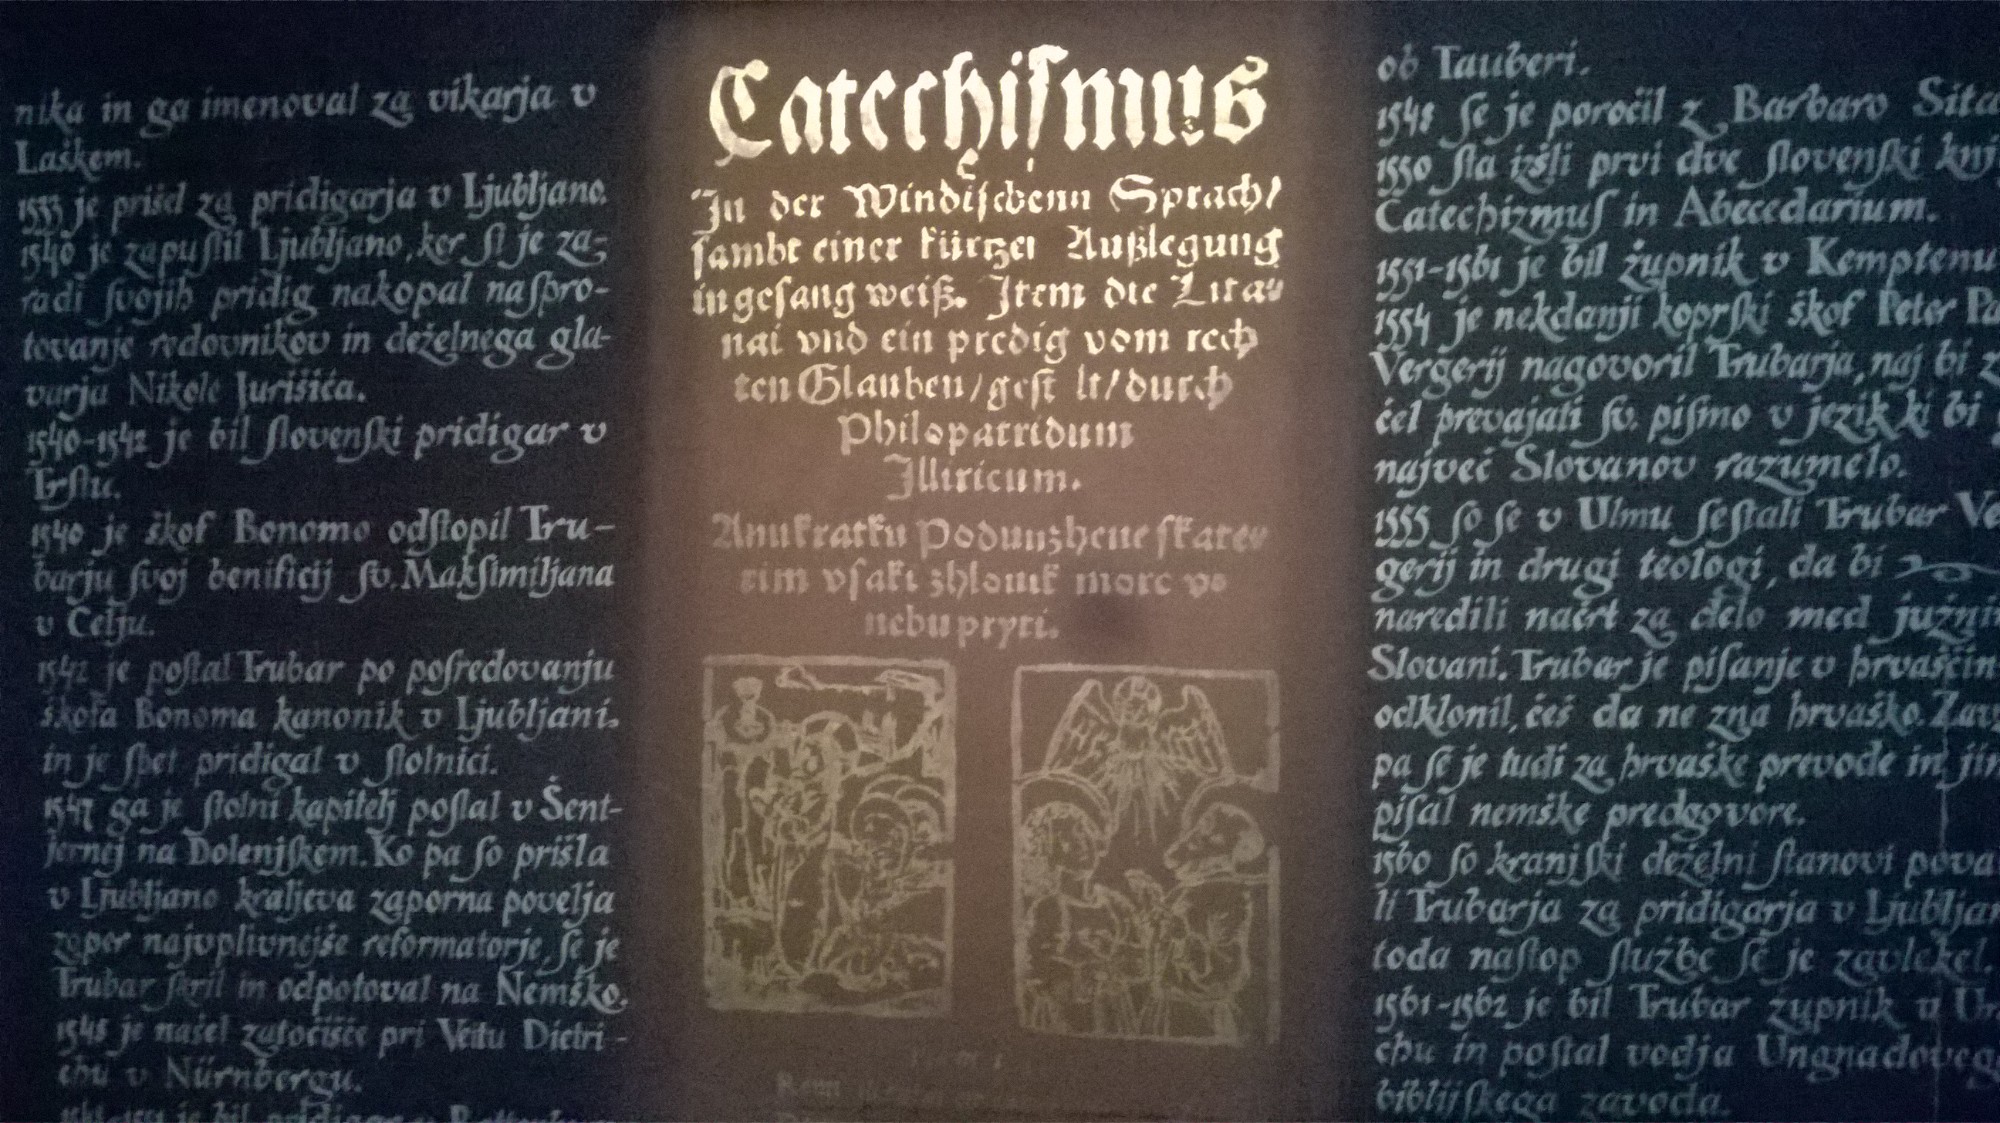 nika in ga imenoval za vikarja v
Laškem.
1533 je prišel za pridigarja v Ljubljano.
1540 je zapuſtil Ljubljano, ker ſi je za-
radi ſvojih pridig nakopal naſpro-
tovanje redovnikov in deželnega gla-
varja Nikole Jurišića.
1540-1542 je bil ſlovenſki pridigar v
Trſtu.
1540 je škof Bonomo odſtopil Tru-
barju ſvoj beneficij ſv. Makſimiljana
v Celju.
1542 je poſtal Trubar po poſredovanju
škofa Bonoma kanonik v Ljubljani.
in je ſpet pridigal v ſtolnici.
1547 ga je ſtolni kapitelj poſlal v Šent-
jernej na Dolenjſkem. Ko pa ſo prišla
v Ljubljano kraljeva zaporna povelja
zoper najvplivnejše reformatorje, ſe je
Trubar ſkril in odpotoval na Nemško.
1548 je našel zatočišče pri Veitu Dietri-
chu v Nürnbergu.
je bil pridigar v
Catechiſmus
In der Windiſchenn Sprach/
ſambt einer kürtzen Außlegung
in geſang weiß. Item die Lita-
nai vnd ein predig vom rech
ten Glauben/geſt lt/durch
Philopatridum
Illiricum.
Anu kratku Poduuzhene ſkate
rim vſaki zhlouik more vo
nebu pryti.
ob Tauberi.
1548 ſe je poročil z Barbaro Sita
1550 ſta izšli prvi dve ſlovenſki knj
Catechizmuſ in Abecedarium.
1551-1561 je bil župnik v Kemptenu
1554 je nekdanji koprſki škof Peter Pa
Vergerij nagovoril Trubarja, naj bi z
čel prevajati ſv. piſmo v jezik ki bi
največ Slovanov razumelo.
1555 ſo ſe v Ulmu ſeſtali Trubar Ve
gerij in drugi teologi, da bi
naredili načrt za delo med južni
Slovani. Trubar je piſanje v hrvaščin
odklonil, češ da ne zna hrvaško. Zav
pa ſe je tudi za hrvaške prevode in jim
piſal nemške predgovore.
1560 ſo kranjſki deželni ſtanovi pova
li Trubarja za pridigarja v Ljubljan
toda naſtop ſlužbe ſe je zavlekel.
1561-1562 je bil Trubar župnik v Ur
chu in poſtal vodja Ungnadoveg
biblijſkega zavoda.